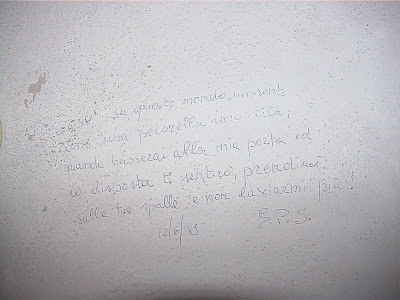 su questo mondo, mi sento
una pecorella
quando busserai alla mia porta ed
io disposta ti sentirò, prendimi
sulle tue spalle e non lasciarmi più!